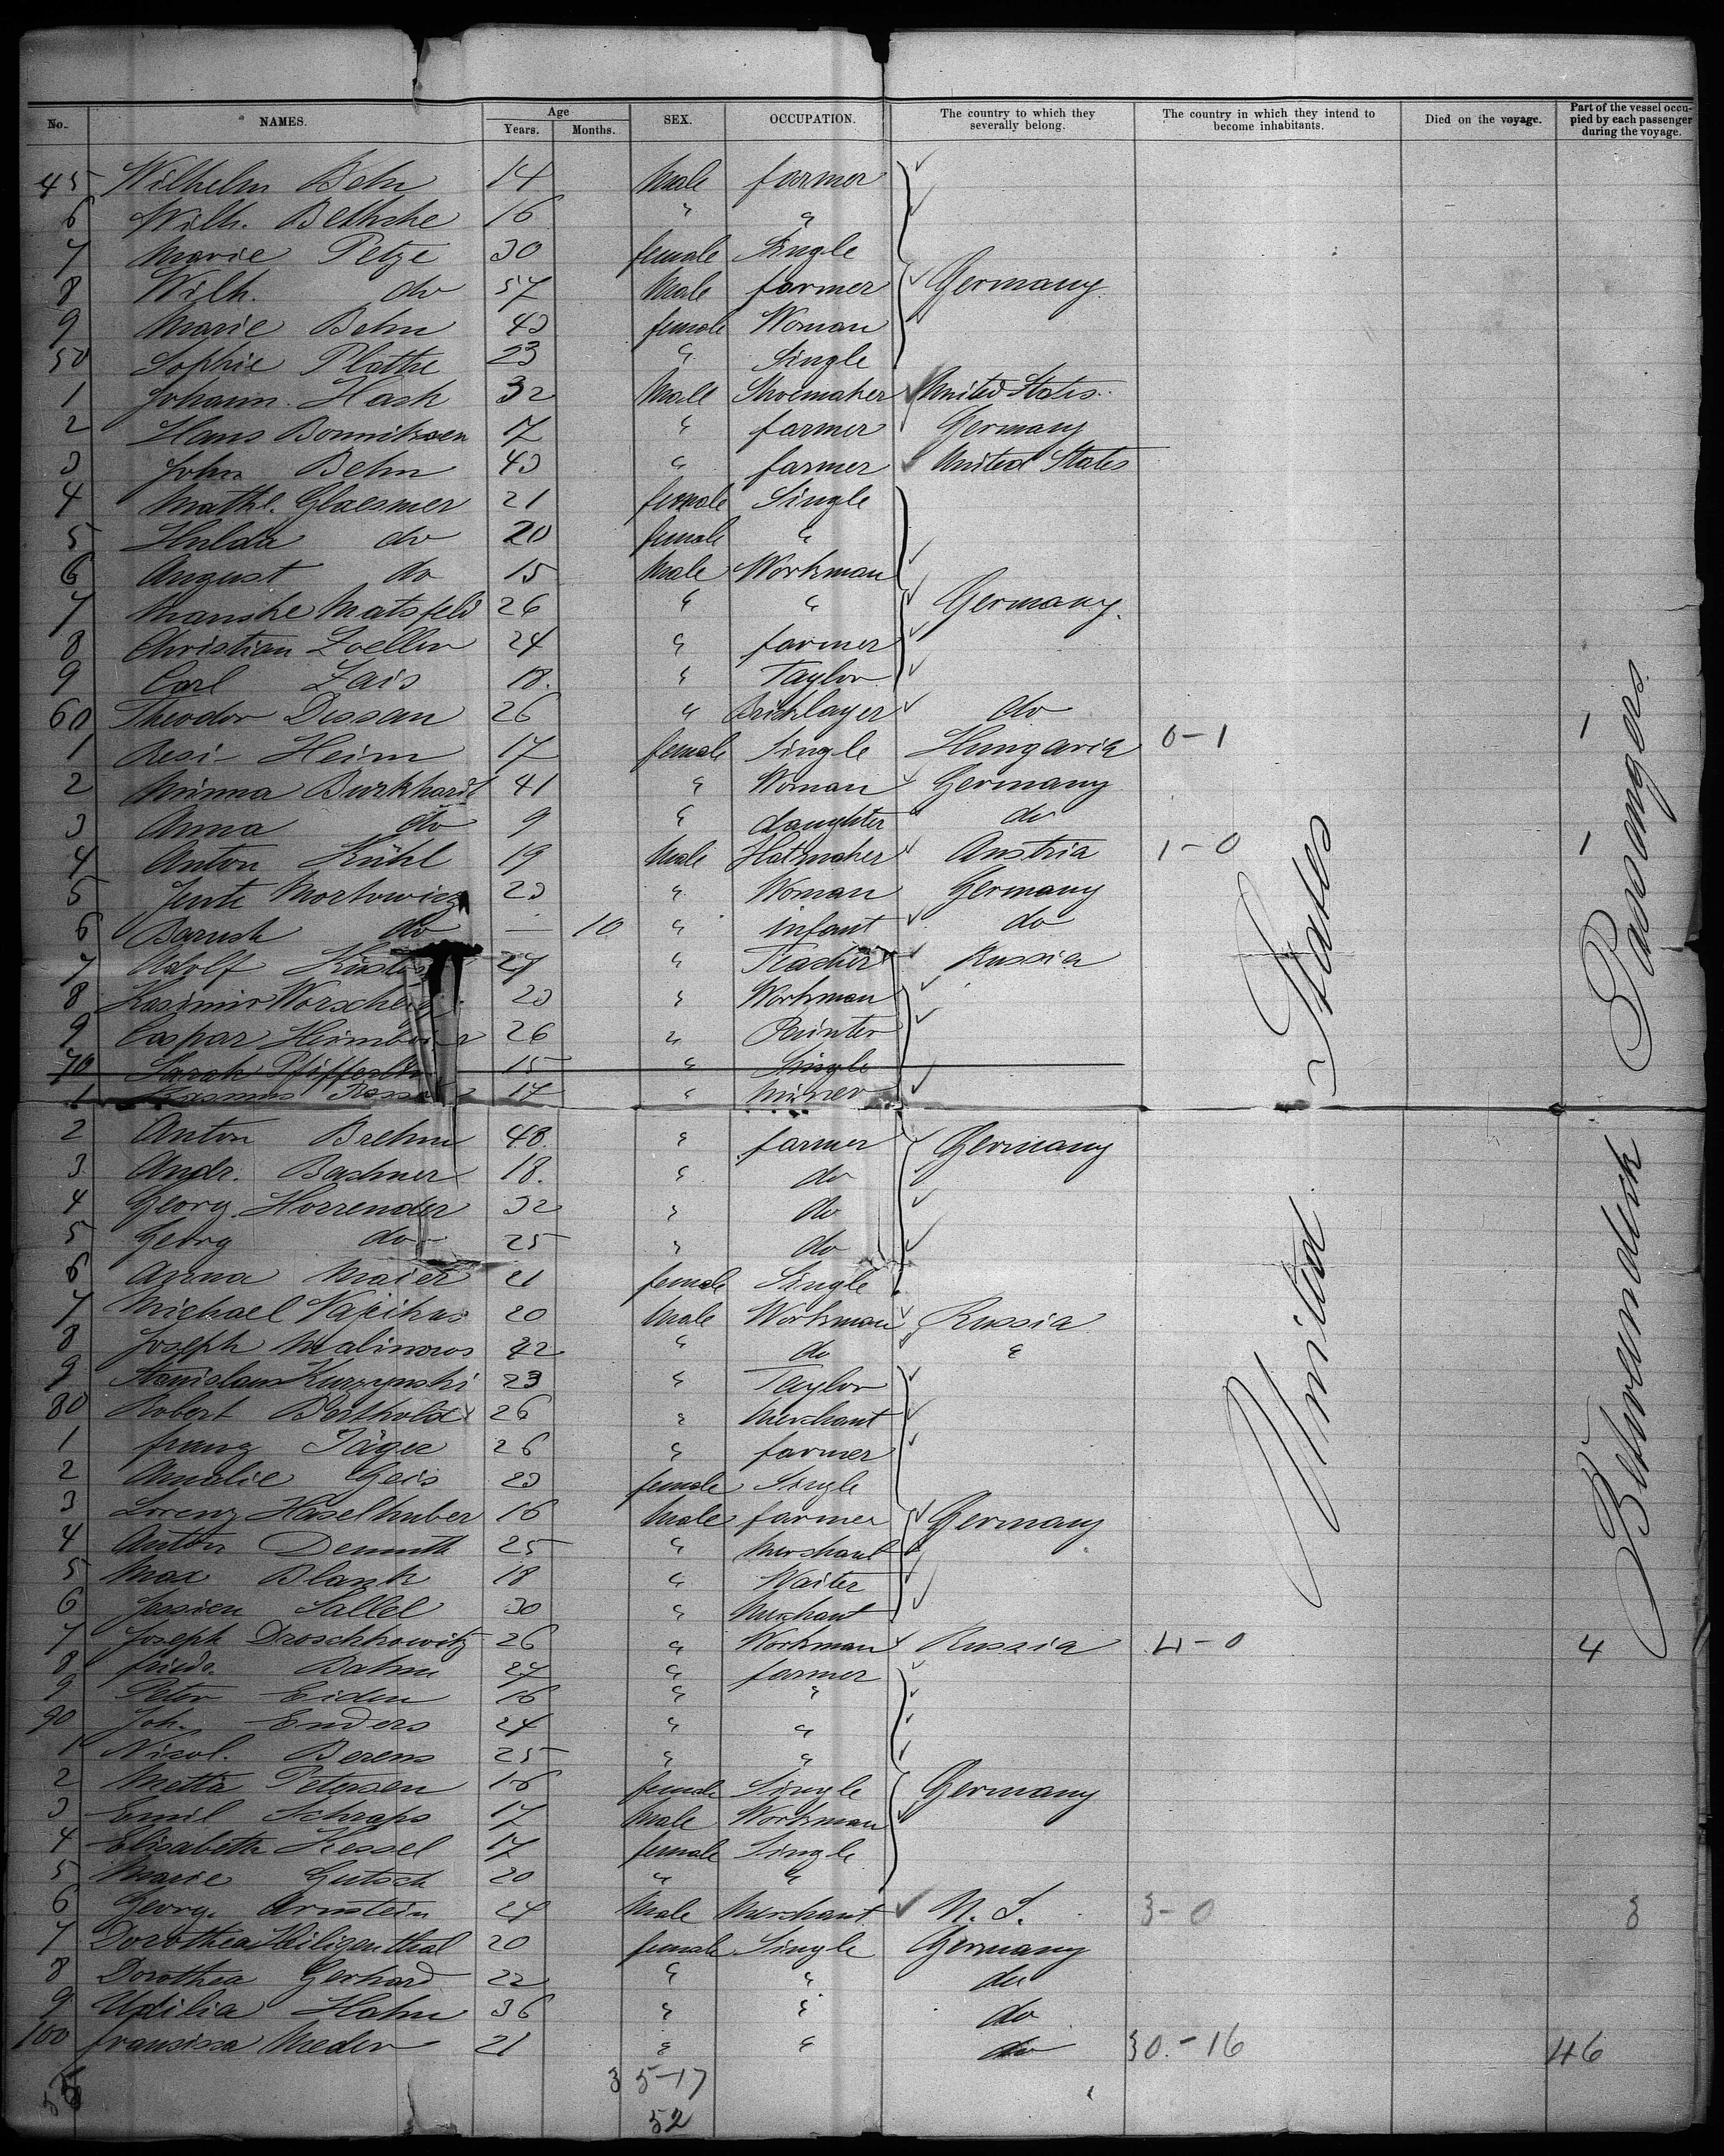 No. NAMES. Age Years. Months. SEX. OCCUPATION. The country to which they severally belong. The country in which they intend to become inhabitants. Died on the voyage. Part of the vessel occupied by each passenger during the voyage.
45 Wilhelm Behn 14 Male farmer
6 Wilh. Bethske 16 " "
7 Marie Petze 30 female Single
8 Wilh. do 57 Male farmer Germany
9 Marie Behn 43 female Woman
50 Sophie Plathe 23 " Single
1 Johann Hash 32 Male Shoemaker United States
2 Hans Bonniksen 17 " farmer Germany
3 John Behn 43 " farmer United States
4 Mathl. Glaesmer 21 female Single
5 Hulda do 20 female "
6 August do 15 Male Workman
7 Manske Matsfeld 26 " " Germany.
8 Christian Zoeller 24 " farmer
9 Carl Zais 18. " Taylor
60 Theodor Dessau 26 " Bricklayer do 1
1 Resi Heim 17 female Single Hungaria 0-1
2 Minna Burkhardt 41 " Woman Germany
3 Anna do 9 " daughter do
4 Anton Kühl 19 Male Hatmaker Austria 1-0 1
5 Jente 23 " Woman Germany
6 Barush do — 10 " infant do
7 Adolf 27 " Teacher Russia
8 Kasimir 23 " Workman
9 Caspar 26 " Painter
70 Sarah 15 " Single
1 17 " Miner
2 Anton Brehm 48. " farmer Germany
3 Andr. Bushner 18. " do
4 Georg Horrender 32 " do
5 Georg do 25 " do
6 Anna Maier 21 female Single
7 Michael 20 Male Workman Russia
8 Joseph Malinows 42 " do "
9 Stanislaus Kurzynski 23 " Taylor
80 Robert Berthold 26 " Merchant
1 franz Jäger 26 " farmer
2 Amalie Geis 23 female Single
3 Lorenz Haselhuber 16 Male farmer Germany
4 Anton Demuth 25 " Merchant
5 Max Blank 18 " Waiter
6 Sallel 30 " Merchant
7 Joseph Droschkowitz 26 " Workman Russia 4-0 4
8 friedr. Bahm 27 " farmer
9 Peter Eiden 16 " "
90 Joh. Enders 24 " "
1 Nicol. Berens 25 " "
2 Metta Petersen 16 female Single Germany
3 Emil Schraps 17 Male Workman
4 Elisabeth Kessel 17 female Single
5 Marie Gutsch 20 " "
6 Georg. Arnstein 24 Male Merchant U. S. 3-0 3
7 Dorothea Heiligenthal 20 female Single Germany
8 Dorothea Gerhard 22 " " do
9 Hahn 36 " " do
100 Meder 21 " " do 30-16 46
35-17
52
United States
Betweendeck Passangers